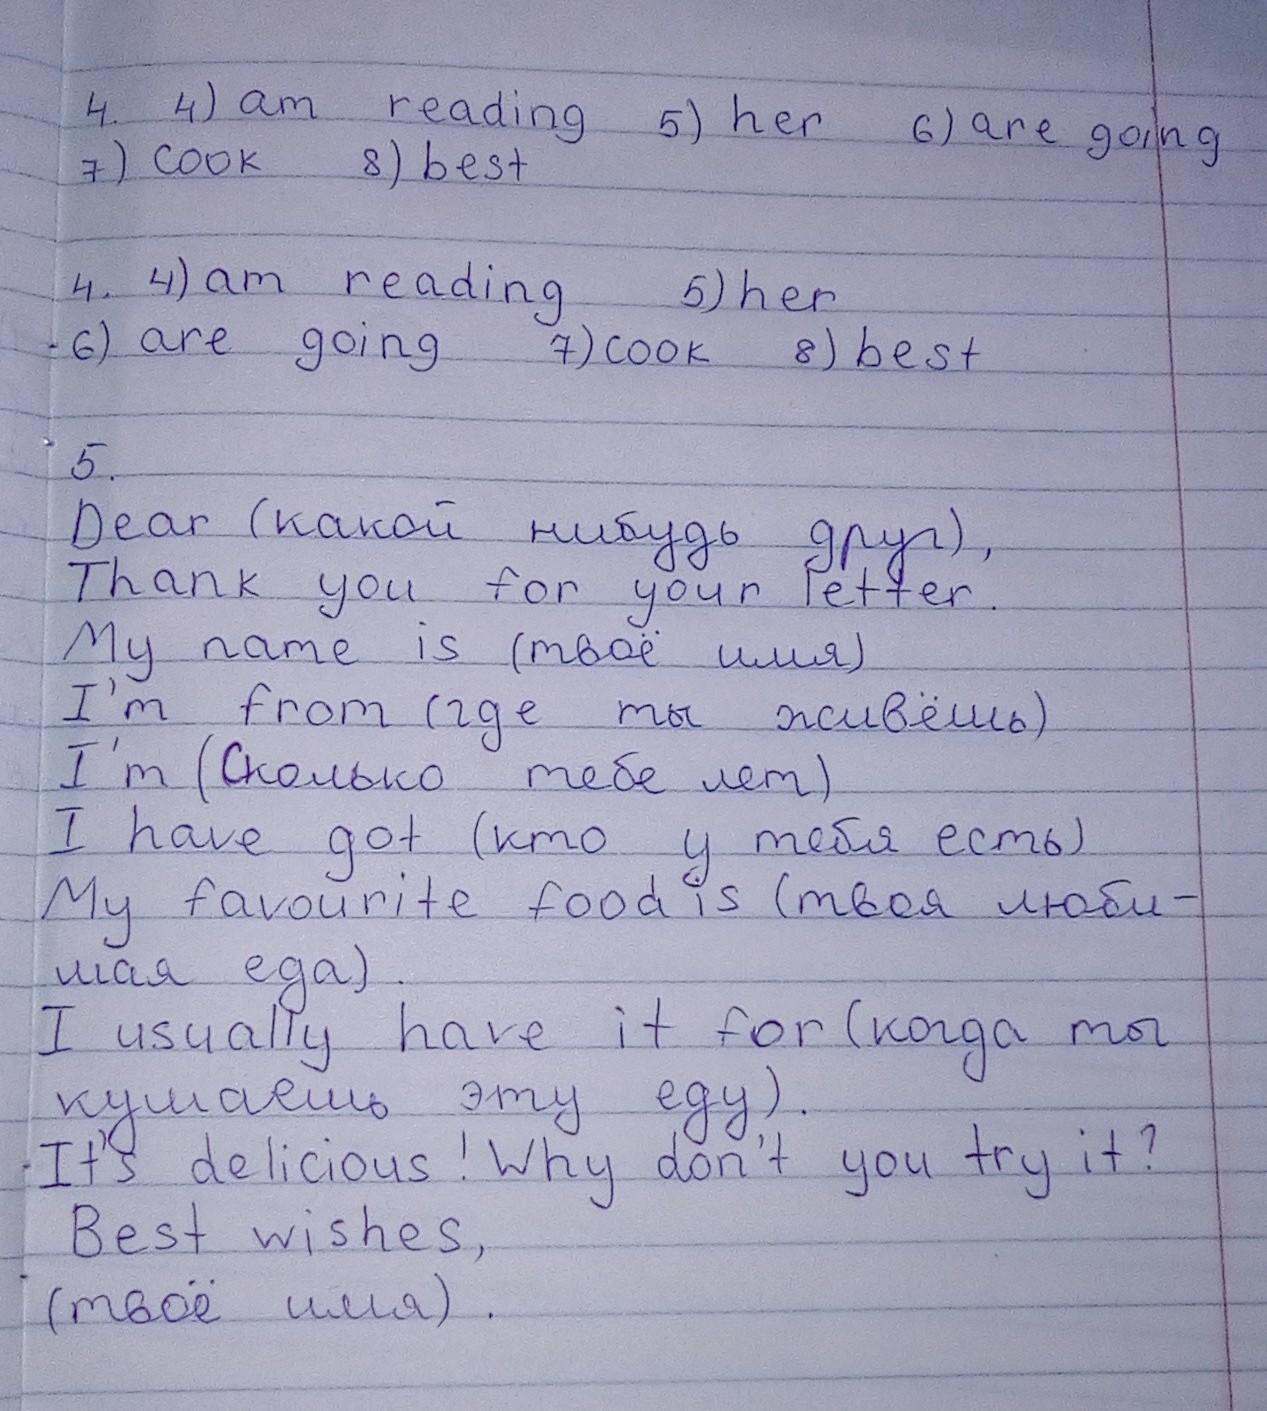 4. 4) am reading 5) her 6) are going
7) cook 8) best
4. 4) am reading 5) her
6) are going 7) cook 8) best
5.
Dear (какой нибудь друг),
Thank you for your letter.
My name is (твоё имя)
I'm from (где ты живёшь)
I'm (Сколько тебе лет)
I have got (кто у тебя есть)
My favourite food is (твоя люби-
мая еда).
I usually have it for (когда ты
кушаешь эту еду).
It's delicious! Why don't you try it?
Best wishes,
(твоё имя).